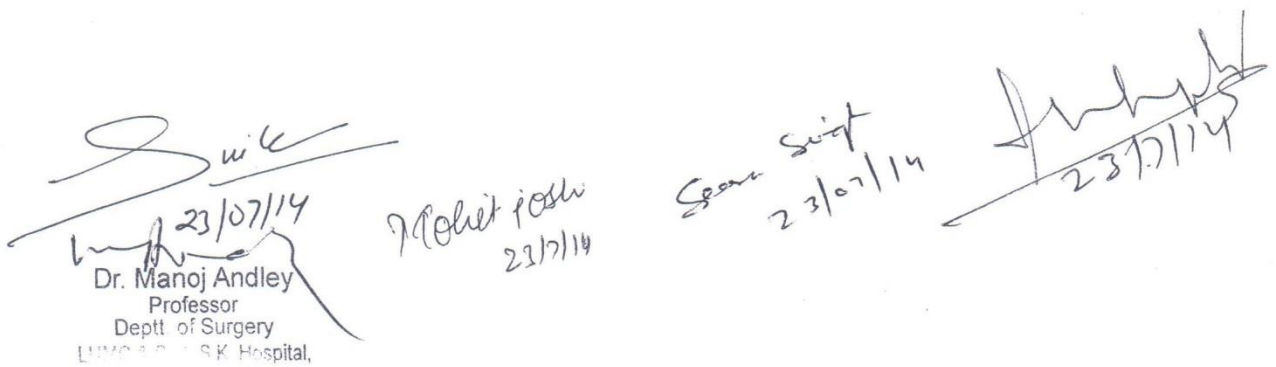 23/07/14
Dr. Manoj Andley
Professor
Deptt. of Surgery
S.K. Hospital,
Mohit joshi
23/7/14
23/07/14
23/7/14